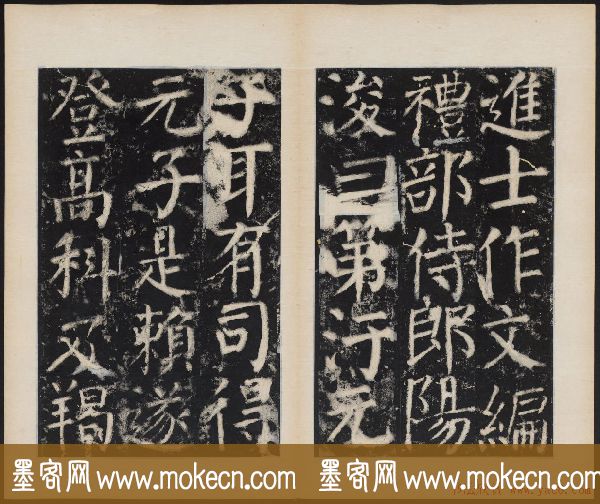 進士作文編
禮部侍郎陽
浚曰第汙元
子耳有司得
元子是賴遂
登高科及羯
墨客网 www.mokecn.com
墨客网 www.mokecn.com